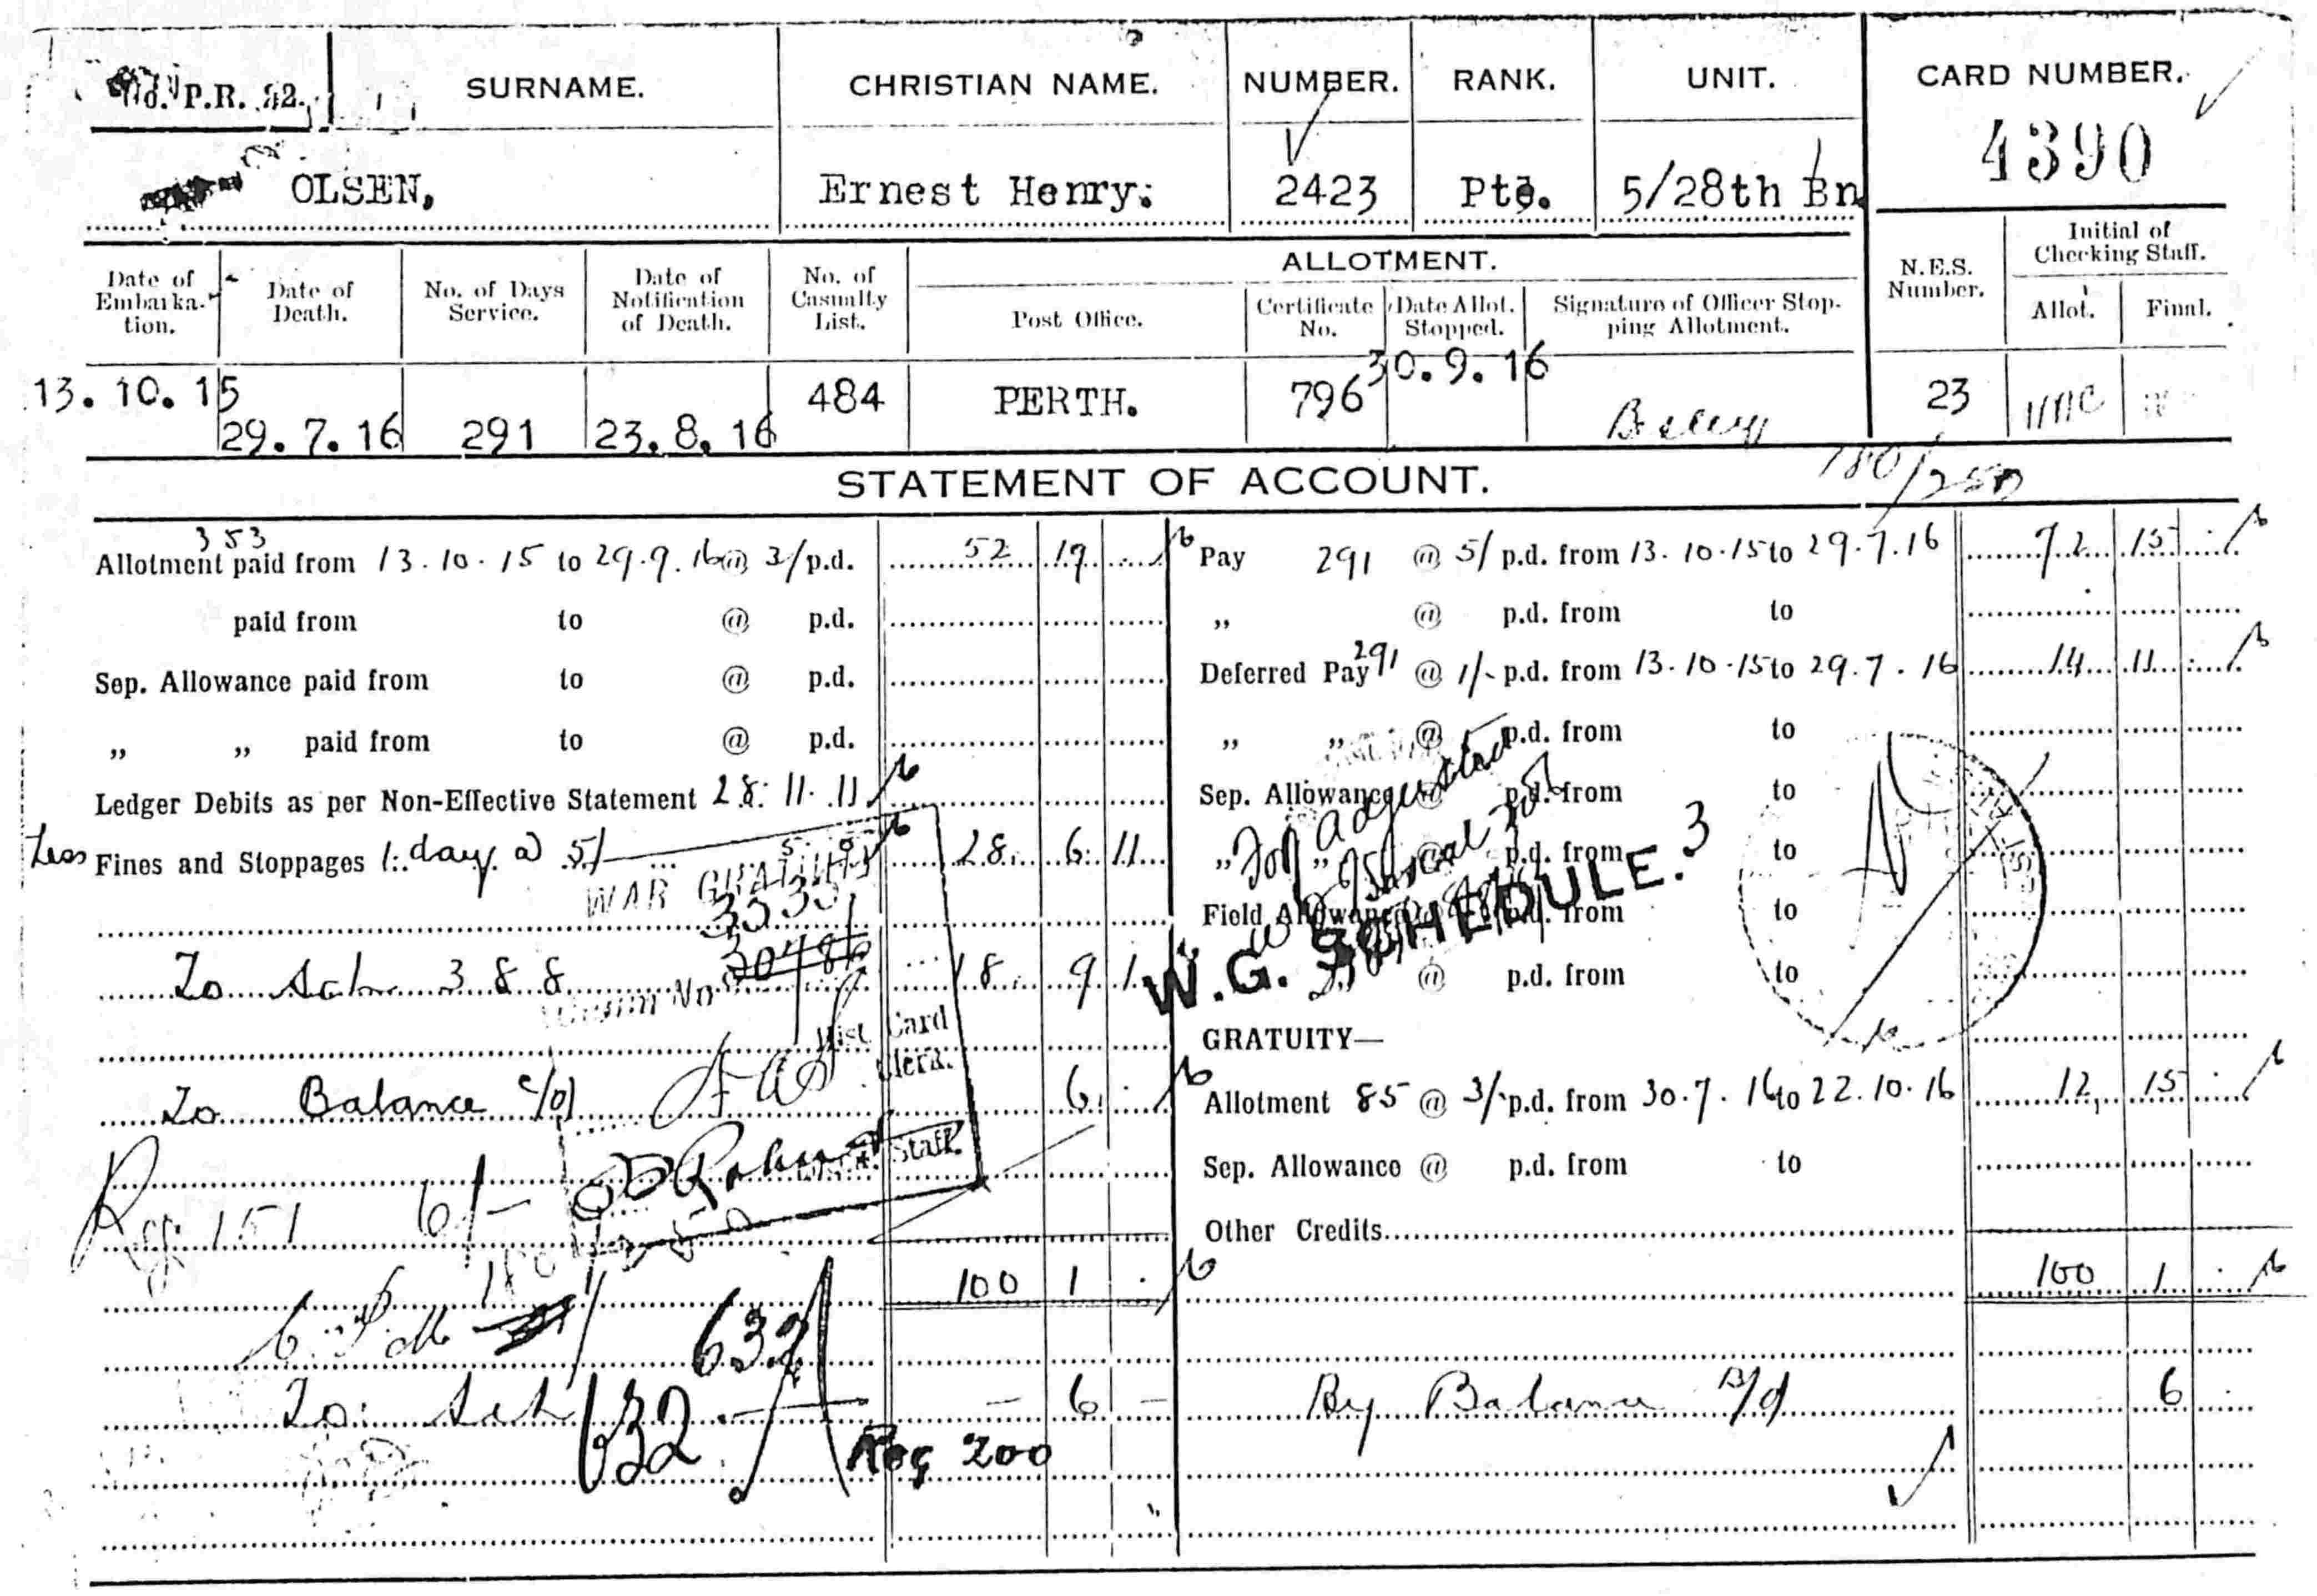 P.R. 22. SURNAME. CHRISTIAN NAME. NUMBER. RANK. UNIT. CARD NUMBER.
OLSEN, Ernest Henry. 2423 Pte. 5/28th Bn 4390
Date of Embarkation. Date of Death. No. of Days Service. Date of Notification of Death. No. of Casualty List. ALLOTMENT. N.E.S. Number. Initial of Checking Staff.
Post Office. Certificate No. Date Allot. Stopped. Signature of Officer Stopping Allotment. Allot. Final.
13.10.15 29.7.16 291 23.8.16 484 PERTH. 796 30.9.16 23
STATEMENT OF ACCOUNT.
353
Allotment paid from 13.10.15 to 29.9.16 @ 3/ p.d. 52 19 .
paid from to @ p.d.
Sep. Allowance paid from to @ p.d.
" " paid from to @ p.d.
Ledger Debits as per Non-Effective Statement 28. 11. 11
Less Fines and Stoppages 1. day @ 5/ 5. 0 28. 6. 11
WAR GRATUITY
3535
To Sch 388 18. 9. 1
Claim No 20486
Hist. Card Clerk.
To Balance c/d 6.
Staff.
Reg. 151 6/-
100 1 .
632
To Sch 632 - 6 -
Reg 200
Pay 291 @ 5/ p.d. from 13.10.15 to 29.7.16 72 15 .
" @ p.d. from to
Deferred Pay 291 @ 1/- p.d. from 13.10.15 to 29.7.16 14 11 .
" " @ p.d. from to
Sep. Allowance @ p.d. from to
" " @ p.d. from to
Field Allowance @ p.d. from to
@ p.d. from to
W.G. SCHEDULE. 3
GRATUITY—
Allotment 85 @ 3/- p.d. from 30.7.16 to 22.10.16 12 15 .
Sep. Allowance @ p.d. from to
Other Credits
100 1 .
By Balance B/d 6 .